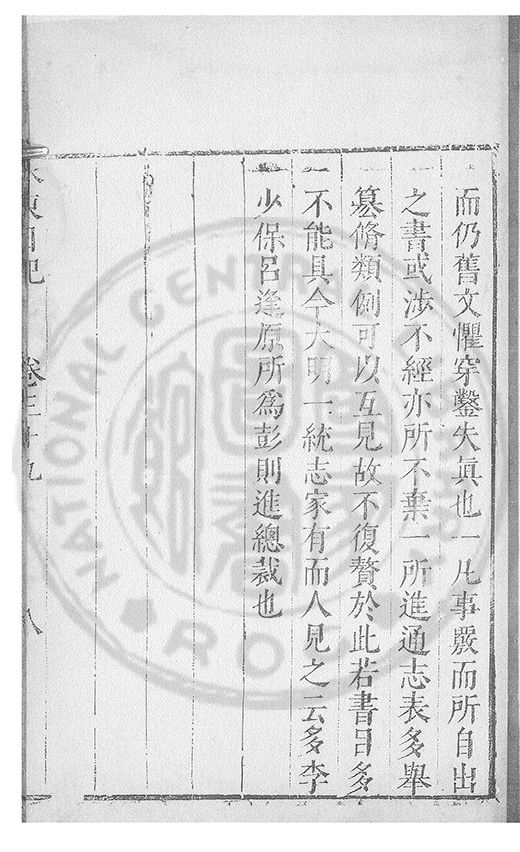 而仍舊文懼穿鑿失眞也一凡事覈而所自出
之書或涉不經亦所不棄一所進通志表多舉
纂脩類例可以互見故不復贅於此若書目多
不能具今大明一統志家有而人見之云多李
少保呂逢原所爲彭則進總裁也
東日記
卷三十九
八
NATIONAL CENTRAL